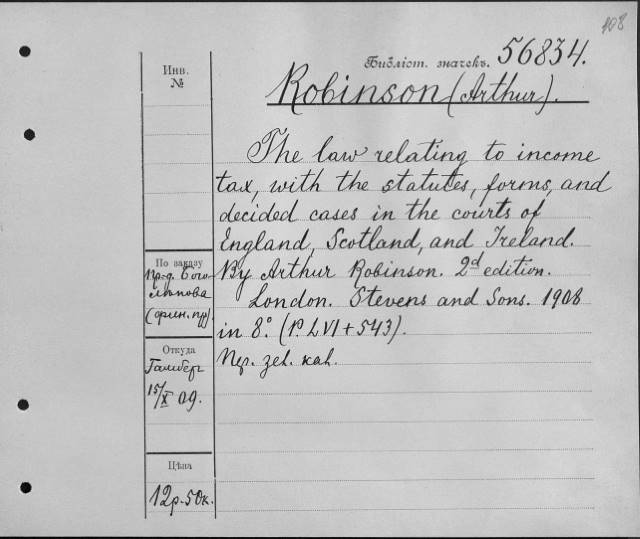 108
Библіот. значекъ. 56834.
Robinson (Arthur).
The law relating to income
tax, with the statutes, forms, and
decided cases in the courts of
England, Scotland, and Ireland.
By Arthur Robinson. 2d edition.
London. Stevens and Sons. 1908
in 8º. (P. LVI + 543).
Пер. зел. кал.
Инв.
№
По заказу
Пр-д. Бого
лѣпова
(фин. пр).
Откуда
15/X 09.
Цѣна
12р. 50к.